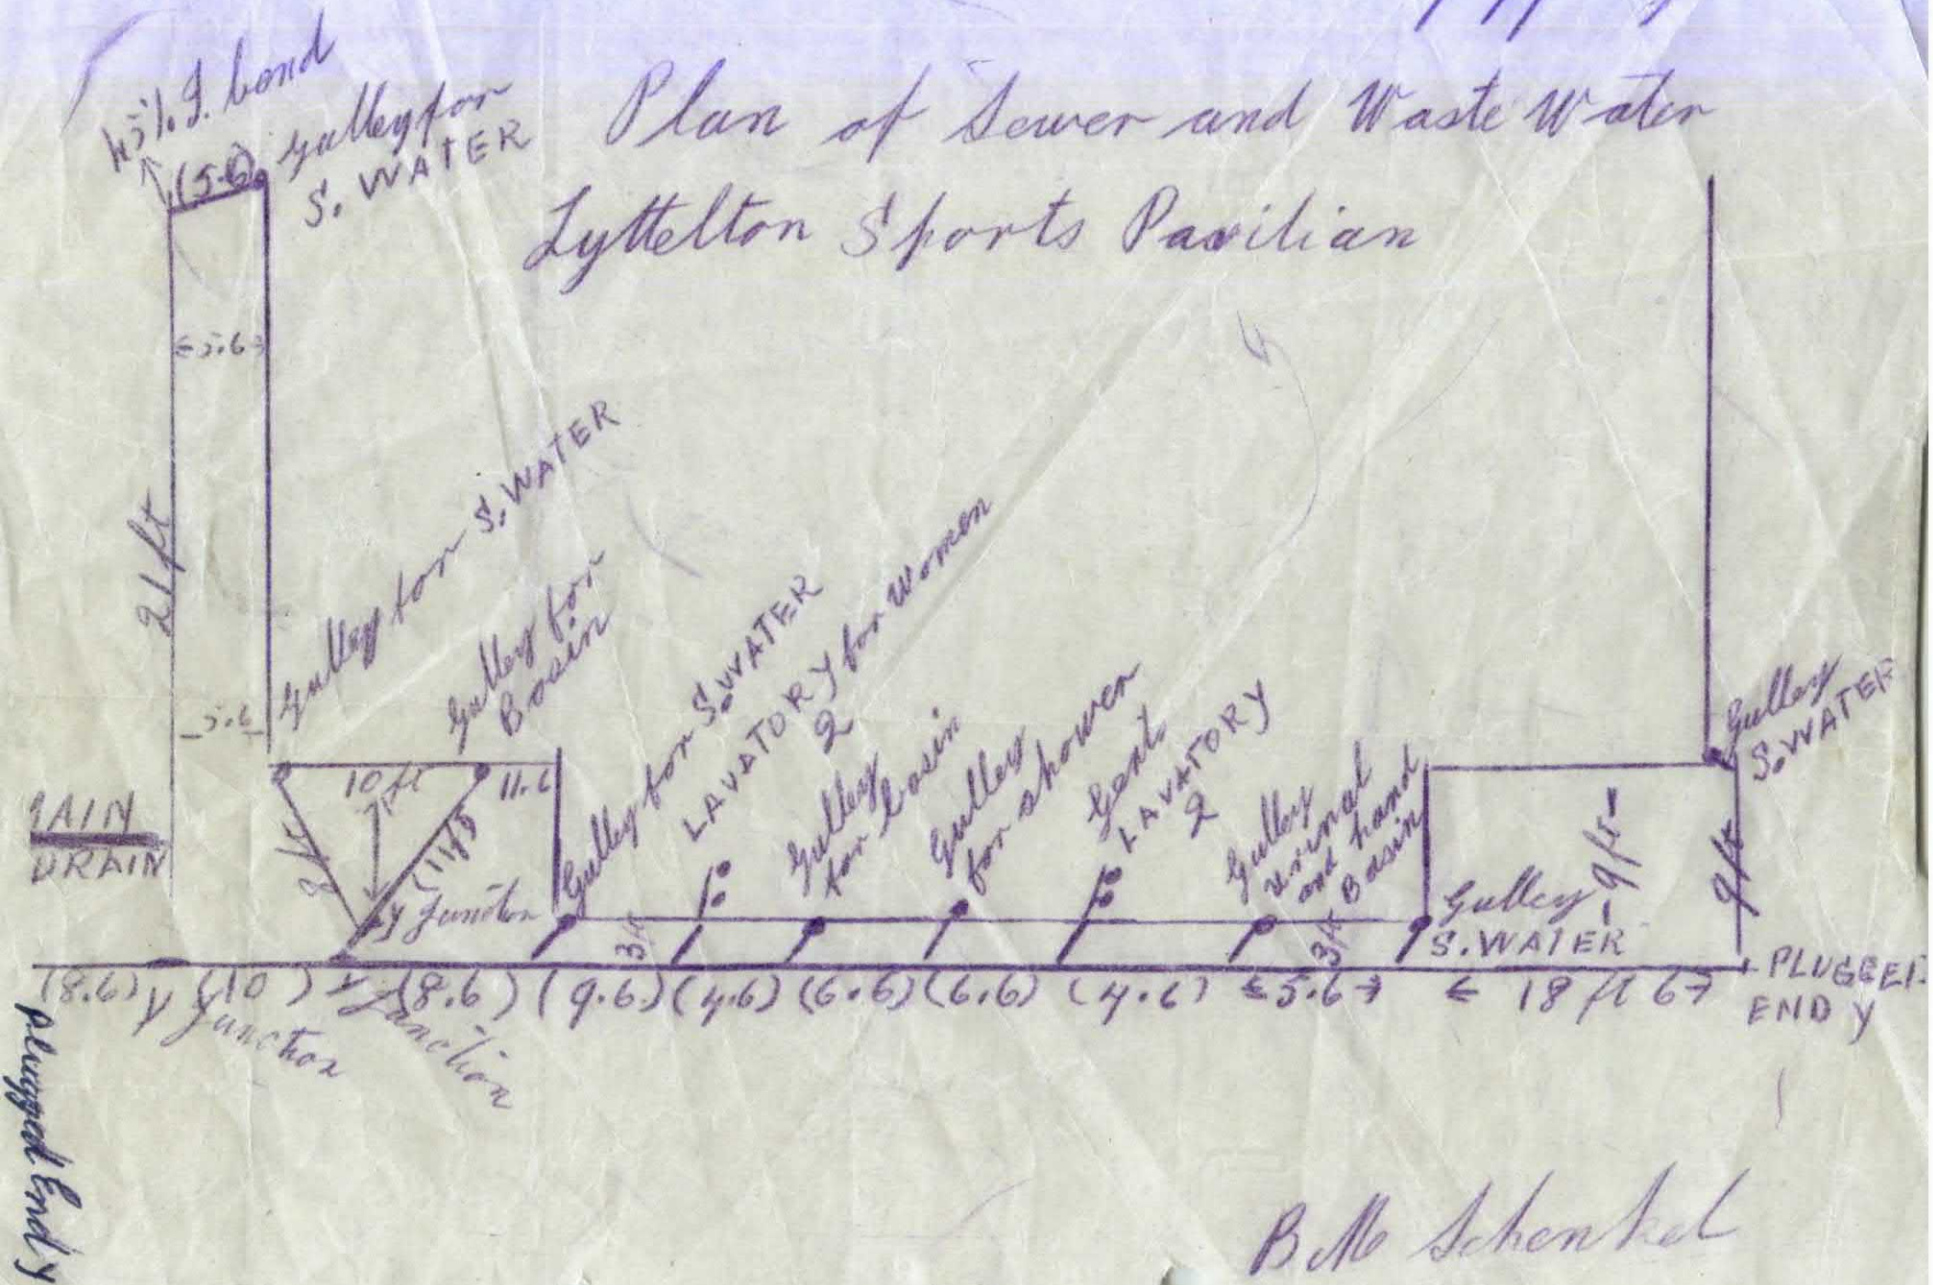 Plan of Sewer and Waste Water
Lyttelton Sports Pavilian
bend
(5.6)
Gulley for
S. WATER
←5.6→
21 ft
5.6
Gulley for S. WATER
Gulley for
Basin
10 ft
11.6
8 ft
Y Junction
DRAIN
Gulley for S. WATER
LAVATORY for Women
2
Gulley
for basin
Gulley
for shower
Gent.
LAVATORY
2
Gulley
Urinal
and hand
Basin
3 ft
3 ft
Gulley
S. WATER
9 ft
9 ft
Gulley
S. WATER
(8.6) Y Junction (10) Y Junction (8.6) (9.6) (4.6) (6.6) (6.6) (4.6) ←5.6→ ← 18 ft 6→
PLUGGED
END Y
Plugged End Y
B M Schenkel